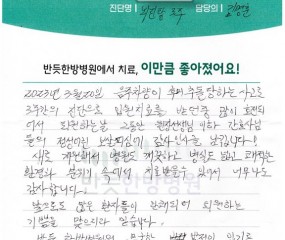 진단명 담당의
반듯한방병원에서 치료, 이만큼 좋아졌어요!
2023년 3월20일 음주차량이 하는 사고로
3주간의 진단으로 입원치료를 받던중 많이 호전되
어서 퇴원하는날 그동안 원장선생님 이하 간호사님
들의 친절한 감사인사를 남깁니다!
새로 개원해서 병원도 깨끗하고 병실도 넓고 쾌적한
환경과 분위기 속에서 치료받을수 있어서 너무나도
감사합니다.
앞으로도 많은 환자들이 완쾌되어 퇴원하는
기쁨을 맞으리라 믿습니다.
반듯 한방병원의 무궁한 발전이 있기를